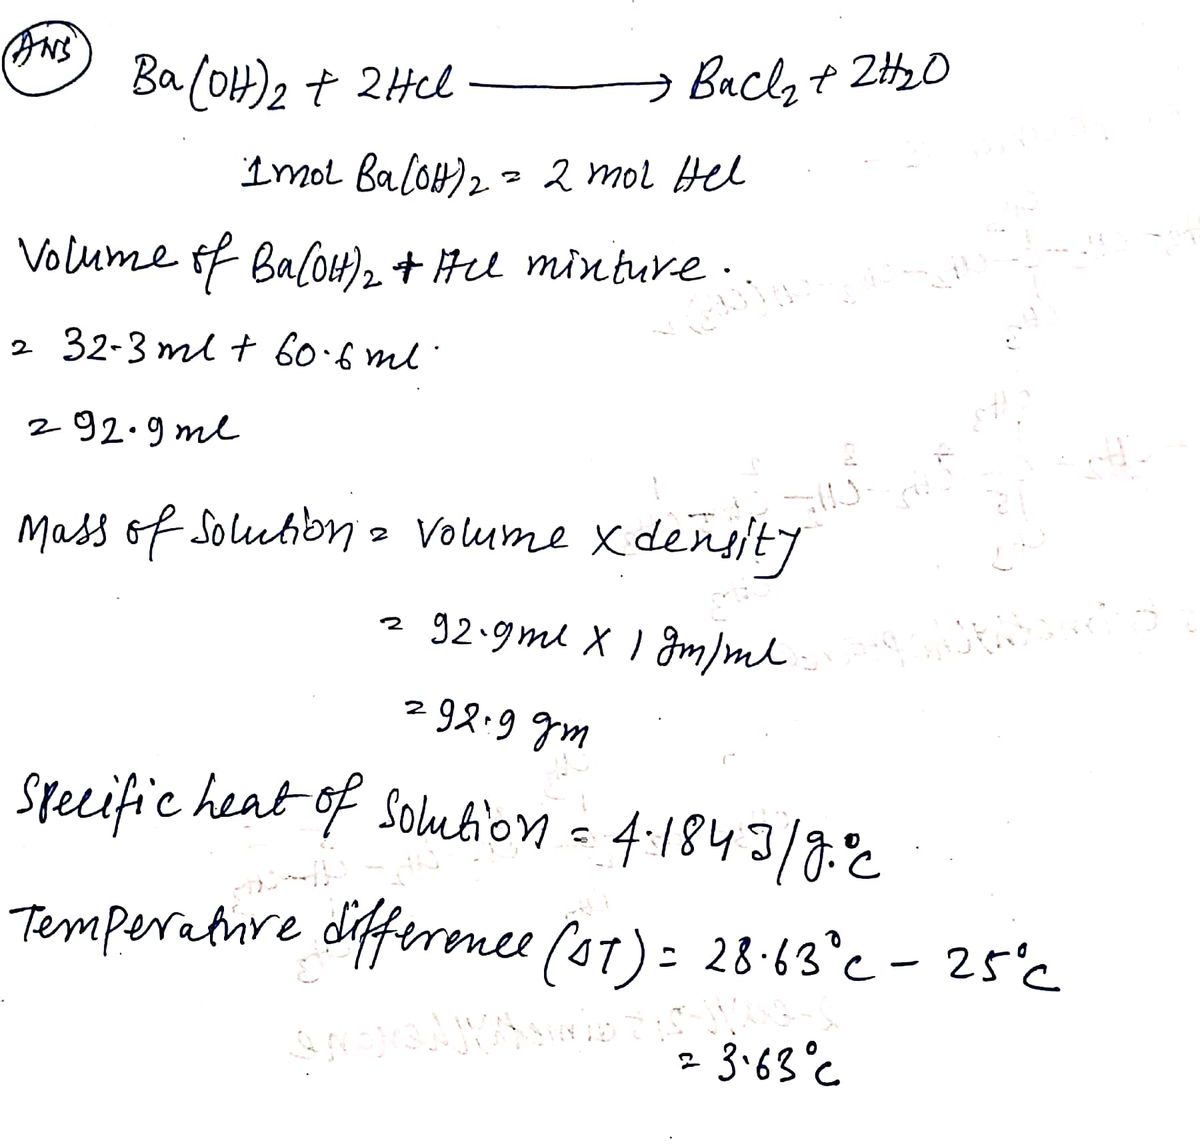 ANS
Ba(OH)2 + 2HCl ⟶ BaCl2 + 2H2O
1mol Ba(OH)2 = 2 mol HCl
Volume of Ba(OH)2 + HCl mixture.
= 32.3 ml + 60.6 ml.
= 92.9 ml
Mass of Solution = Volume x density
= 92.9 ml X 1 gm/ml
= 92.9 gm
Specific heat of Solution = 4.184 J/g.°c
Temperature difference (ΔT) = 28.63°c - 25°c
= 3.63°c